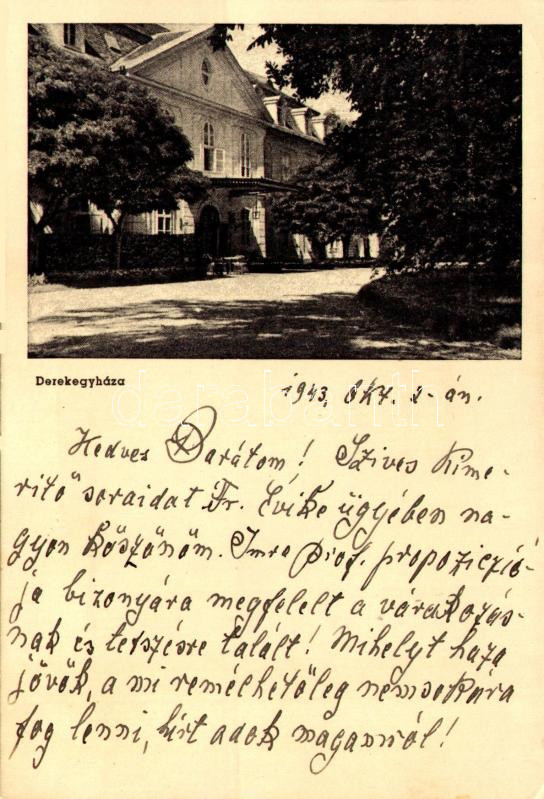 Derekegyháza
1943, Okt. 2-án.
Kedves Barátom! Szives kime-
ritő soraidat Fr. Évike ügyében na-
gyon köszönöm. Imre prof. propoziczió-
ja bizonyára megfelelt a várakozás-
nak és tetszésre talált! Mihelyt haza
jövök, a mi remélhetőleg nemsokára
fog lenni, hirt adok magamról!
darabanth